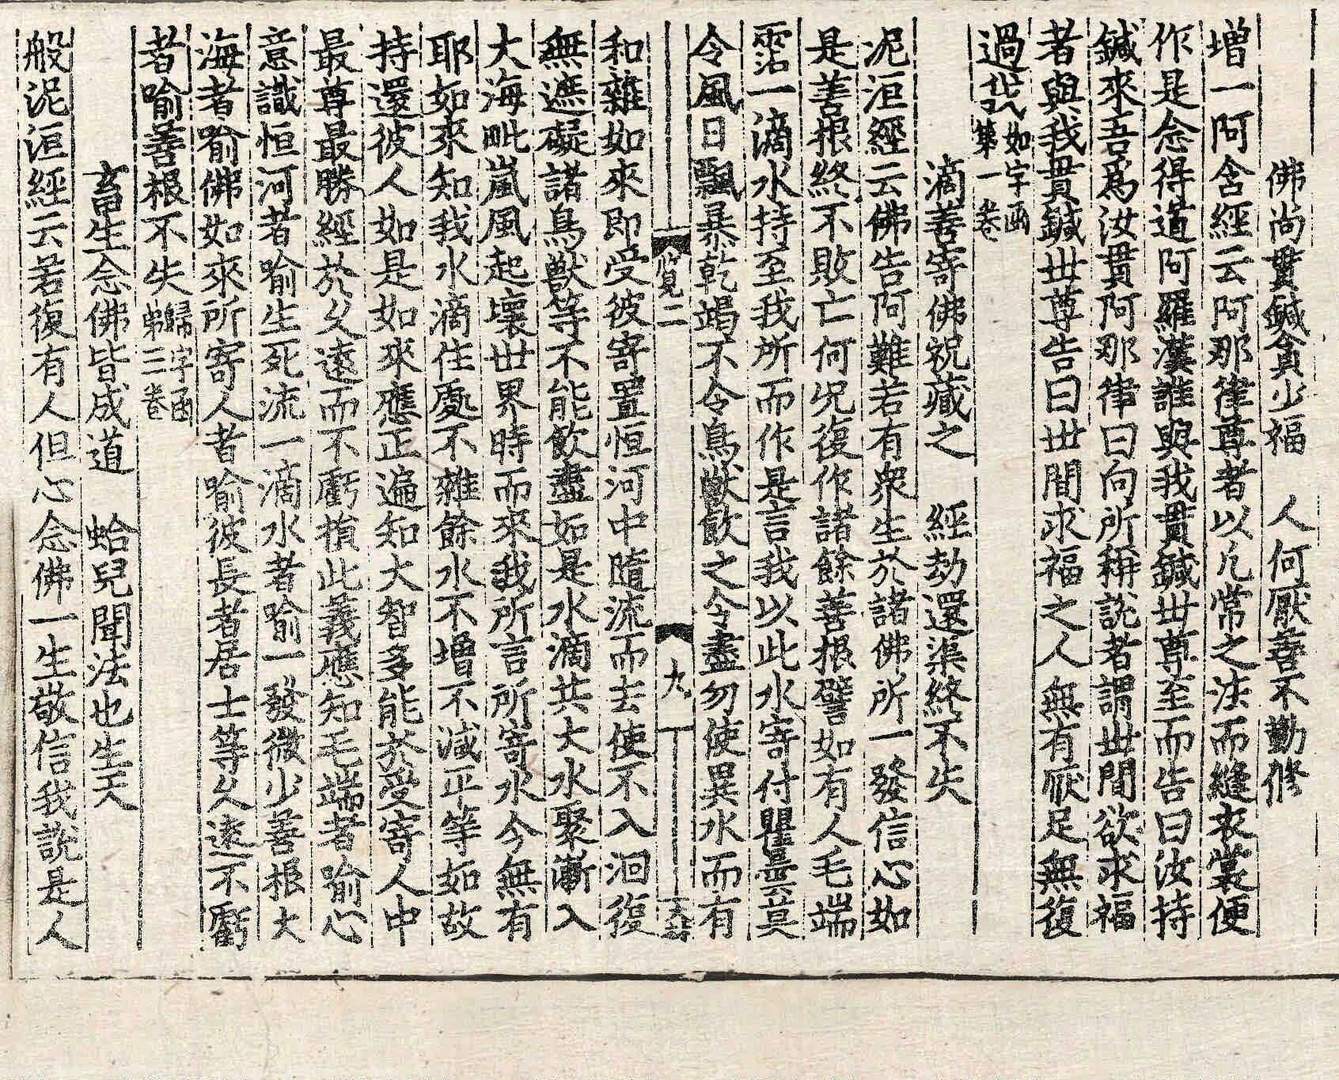 佛尚貫鍼貪少福　人何厭善不勤修
增一阿含經云阿那律尊者以凡常之法而縫衣裳便
作是念得道阿羅漢誰與我貫鍼世尊至而告曰汝持
鍼來吾爲汝貫阿那律曰向所稱說者謂世間欲求福
者與我貫鍼世尊告曰世間求福之人無有厭足無復
過
如字函
第一卷
滴善寄佛祝藏之　經劫還渠終不失
泥洹經云佛告阿難若有衆生於諸佛所一發信心如
是善根終不敗亡何况復作諸餘善根譬如有人毛端
霑一滴水持至我所而作是言我以此水寄付瞿曇莫
令風日飄暴乾竭不令鳥獸飮之令盡勿使異水而有
覧二
九
和雜如來即受彼寄置恒河中隨流而去使不入洄復
無遮礙諸鳥獸等不能飮盡如是水滴共大水聚漸入
大海毗嵐風起壞世界時而來我所言所寄水今無有
耶如來知我水滴住處不雜餘水不增不減平等如故
持還彼人如是如來應正遍知大智多能於受寄人中
最尊最勝經於久遠而不虧損此義應知毛端者喻心
意識恒河者喻生死流一滴水者喻一發微少善根大
海者喻佛如來所寄人者喻彼長者居士等久遠不虧
者喻善根不失
歸字函
第三卷
畜生念佛皆成道　蛤兒聞法也生天
般泥洹經云若復有人但心念佛一生敬信我說是人